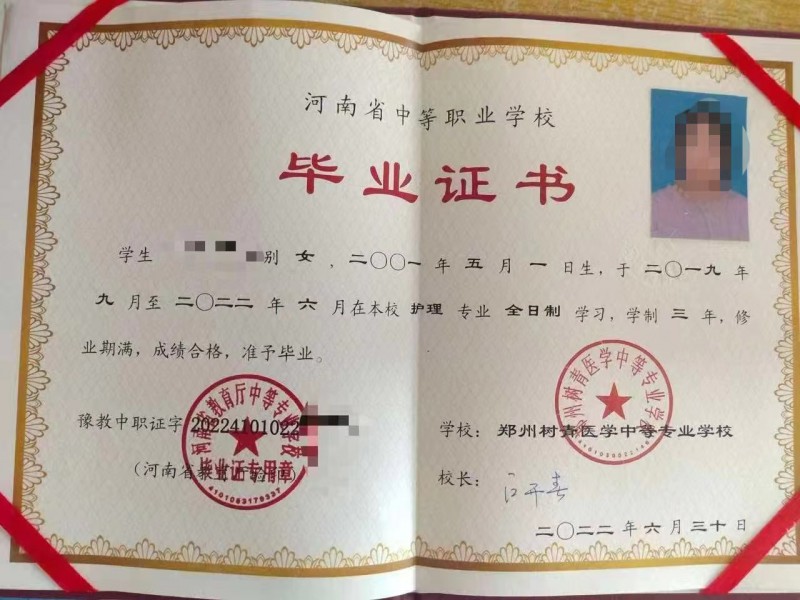 河南省中等职业学校
毕业证书
学生 别 女，二〇〇一年五月一日生，于二〇一九年
九月至二〇二二年六月在本校护理专业全日制学习，学制三年，修
业期满，成绩合格，准予毕业。
豫教中职证字 20224101022
(河南省教
学校：郑州树青医学中等专业学校
校长：
二〇二二年六月三十日
教育厅中等专业学校
毕业证专用章
4101083179327
郑州树青医学中等专业学校